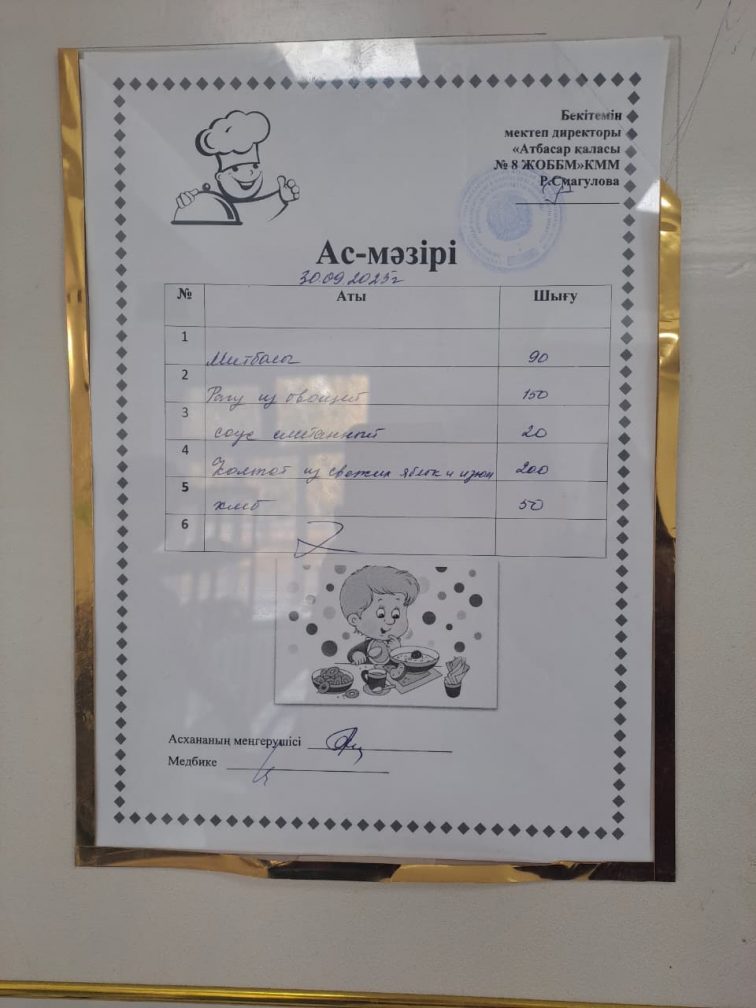 Бекітемін
мектеп директоры
«Атбасар қаласы
№ 8 ЖОББМ»КММ
Р.Смагулова
Ас-мәзірі
30.09.2025г
№ Аты Шығу
1 Митболы 90
2 Рагу из овощей 150
3 соус сметанный 20
4 Компот из свежих яблок и изюм 200
5 хлеб 50
6
Асхананың меңгерушісі
Медбике